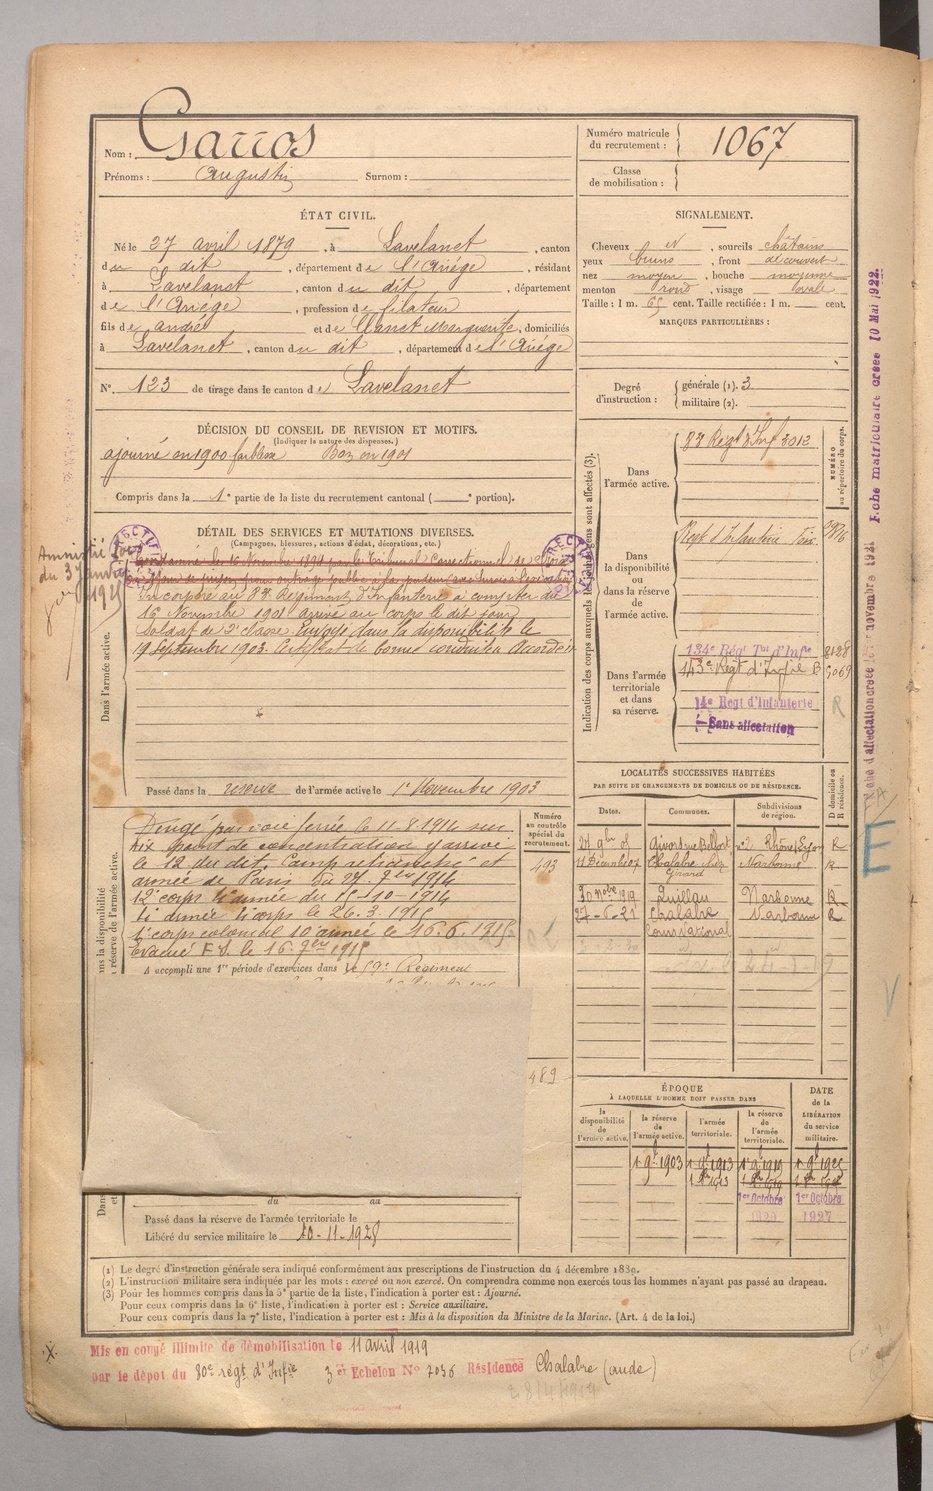 Nom : Garros
Prénoms : Augustin Surnom :
Numéro matricule du recrutement : 1067
Classe de mobilisation :
ÉTAT CIVIL.
Né le 27 avril 1879, à Lavelanet, canton
du dit, département de l'Ariège, résidant
à Lavelanet, canton du dit, département
de l'Ariège, profession de fileteur
fils de André et de Clanet Marguerite, domiciliés
à Lavelanet, canton du dit, département de l'Ariège
N° 123 de tirage dans le canton de Lavelanet
SIGNALEMENT.
Cheveux N, sourcils châtains
yeux bruns, front découvert
nez moyen, bouche moyenne
menton rond, visage ovale
Taille : 1 m. 65 cent. Taille rectifiée : 1 m. cent.
MARQUES PARTICULIÈRES :
Degré d'instruction : générale (1). 3
militaire (2).
DÉCISION DU CONSEIL DE REVISION ET MOTIFS.
(Indiquer la nature des dispenses.)
ajourné en 1900 faiblesse Bon en 1901
Compris dans la 1e partie de la liste du recrutement cantonal ( e portion).
DÉTAIL DES SERVICES ET MUTATIONS DIVERSES.
(Campagnes, blessures, actions d'éclat, décorations, etc.)
Amnistié Loi
du 3 Janvier
1925
Condamné le 16 Novembre 1899 par le Tribunal Correctionnel de
jour de prison pour outrage public à la pudeur
Incorporé au 87e Régiment d'Infanterie à compter du
16 Novembre 1901 arrivé au corps le dit jour
Soldat de 2e classe. Envoyé dans la disponibilité le
19 Septembre 1903. Certificat de bonne conduite Accordé
Dans l'armée active.
Passé dans la réserve de l'armée active le 1er Novembre 1903
Indication des corps auxquels les jeunes gens sont affectés (3).
NUMÉRO au répertoire du corps.
Dans l'armée active. 87 Régt d'Inf 3012
Dans la disponibilité ou dans la réserve de l'armée active. Régt d'Infanterie
Dans l'armée territoriale et dans sa réserve.
134e Régt Tal d'Infie 8128
143e Régt d'Infie B 9069
14e Régt d'Infanterie
Sans affectation
R
Fiche matriculaire créée 10 Mai 1922.
novembre 1921
Numéro au contrôle spécial du recrutement.
493
Dirigé par voie ferrée le 11-8-1914 sur
point de concentration y arrivé
le 12 du dit. Camp retranché et
armée de Paris du 27. 7bre 1914
12e corps 4e armée du 15-10-1914
armée corps le 26.3.1915
1er corps colonial 10e armée le 16.6.1915
Evacué F.S. le 16. 9bre 1915
A accompli une 1re période d'exercices dans le 59e Régiment
489
LOCALITÉS SUCCESSIVES HABITÉES
PAR SUITE DE CHANGEMENTS DE DOMICILE OU DE RÉSIDENCE.
Dates. Communes. Subdivisions de région. D domicile ou R résidence.
Givors rue Belfort n°2 Rhône Lyon R
Chalabre chez Girard Narbonne R
30 nobre 1919 Quillan Narbonne R
27-6-21 Chalabre Narbonne R
Cours National
E
V
ÉPOQUE
À LAQUELLE L'HOMME DOIT PASSER DANS
la disponibilité de l'armée active. la réserve de l'armée active. l'armée territoriale. la réserve de l'armée territoriale. DATE de la LIBÉRATION du service militaire.
1 9b 1903 1 9b 1913 1 9b 1919 1 9b 1925
1er Octobre 1er Octobre
1927
Passé dans la réserve de l'armée territoriale le
Libéré du service militaire le 10-11-1928
(1) Le degré d'instruction générale sera indiqué conformément aux prescriptions de l'instruction du 4 décembre 1889.
(2) L'instruction militaire sera indiquée par les mots : exercé ou non exercé. On comprendra comme non exercés tous les hommes n'ayant pas passé au drapeau.
(3) Pour les hommes compris dans la 5e partie de la liste, l'indication à porter est : Ajourné.
Pour ceux compris dans la 6e liste, l'indication à porter est : Service auxiliaire.
Pour ceux compris dans la 7e liste, l'indication à porter est : Mis à la disposition du Ministre de la Marine. (Art. 4 de la loi.)
Mis en congé illimité de démobilisation le 11 avril 1919
par le dépôt du 80e régt d'Infie 3e Echelon N° 7036 Résidence Chalabre (aude)